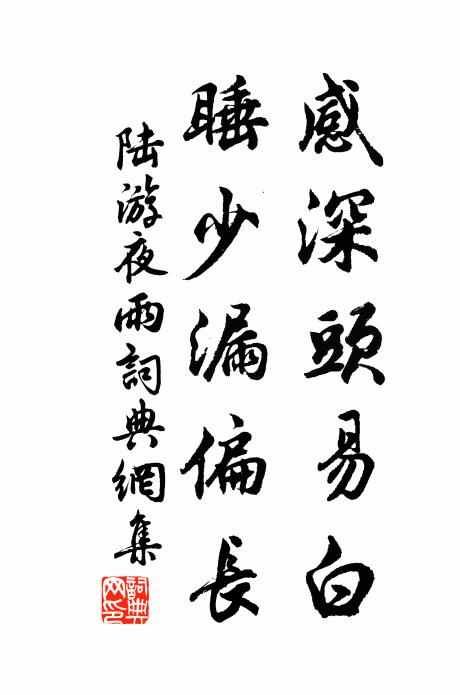 感深頭易白
睡少漏偏長
陆游夜雨詞典網集
詞典
网印